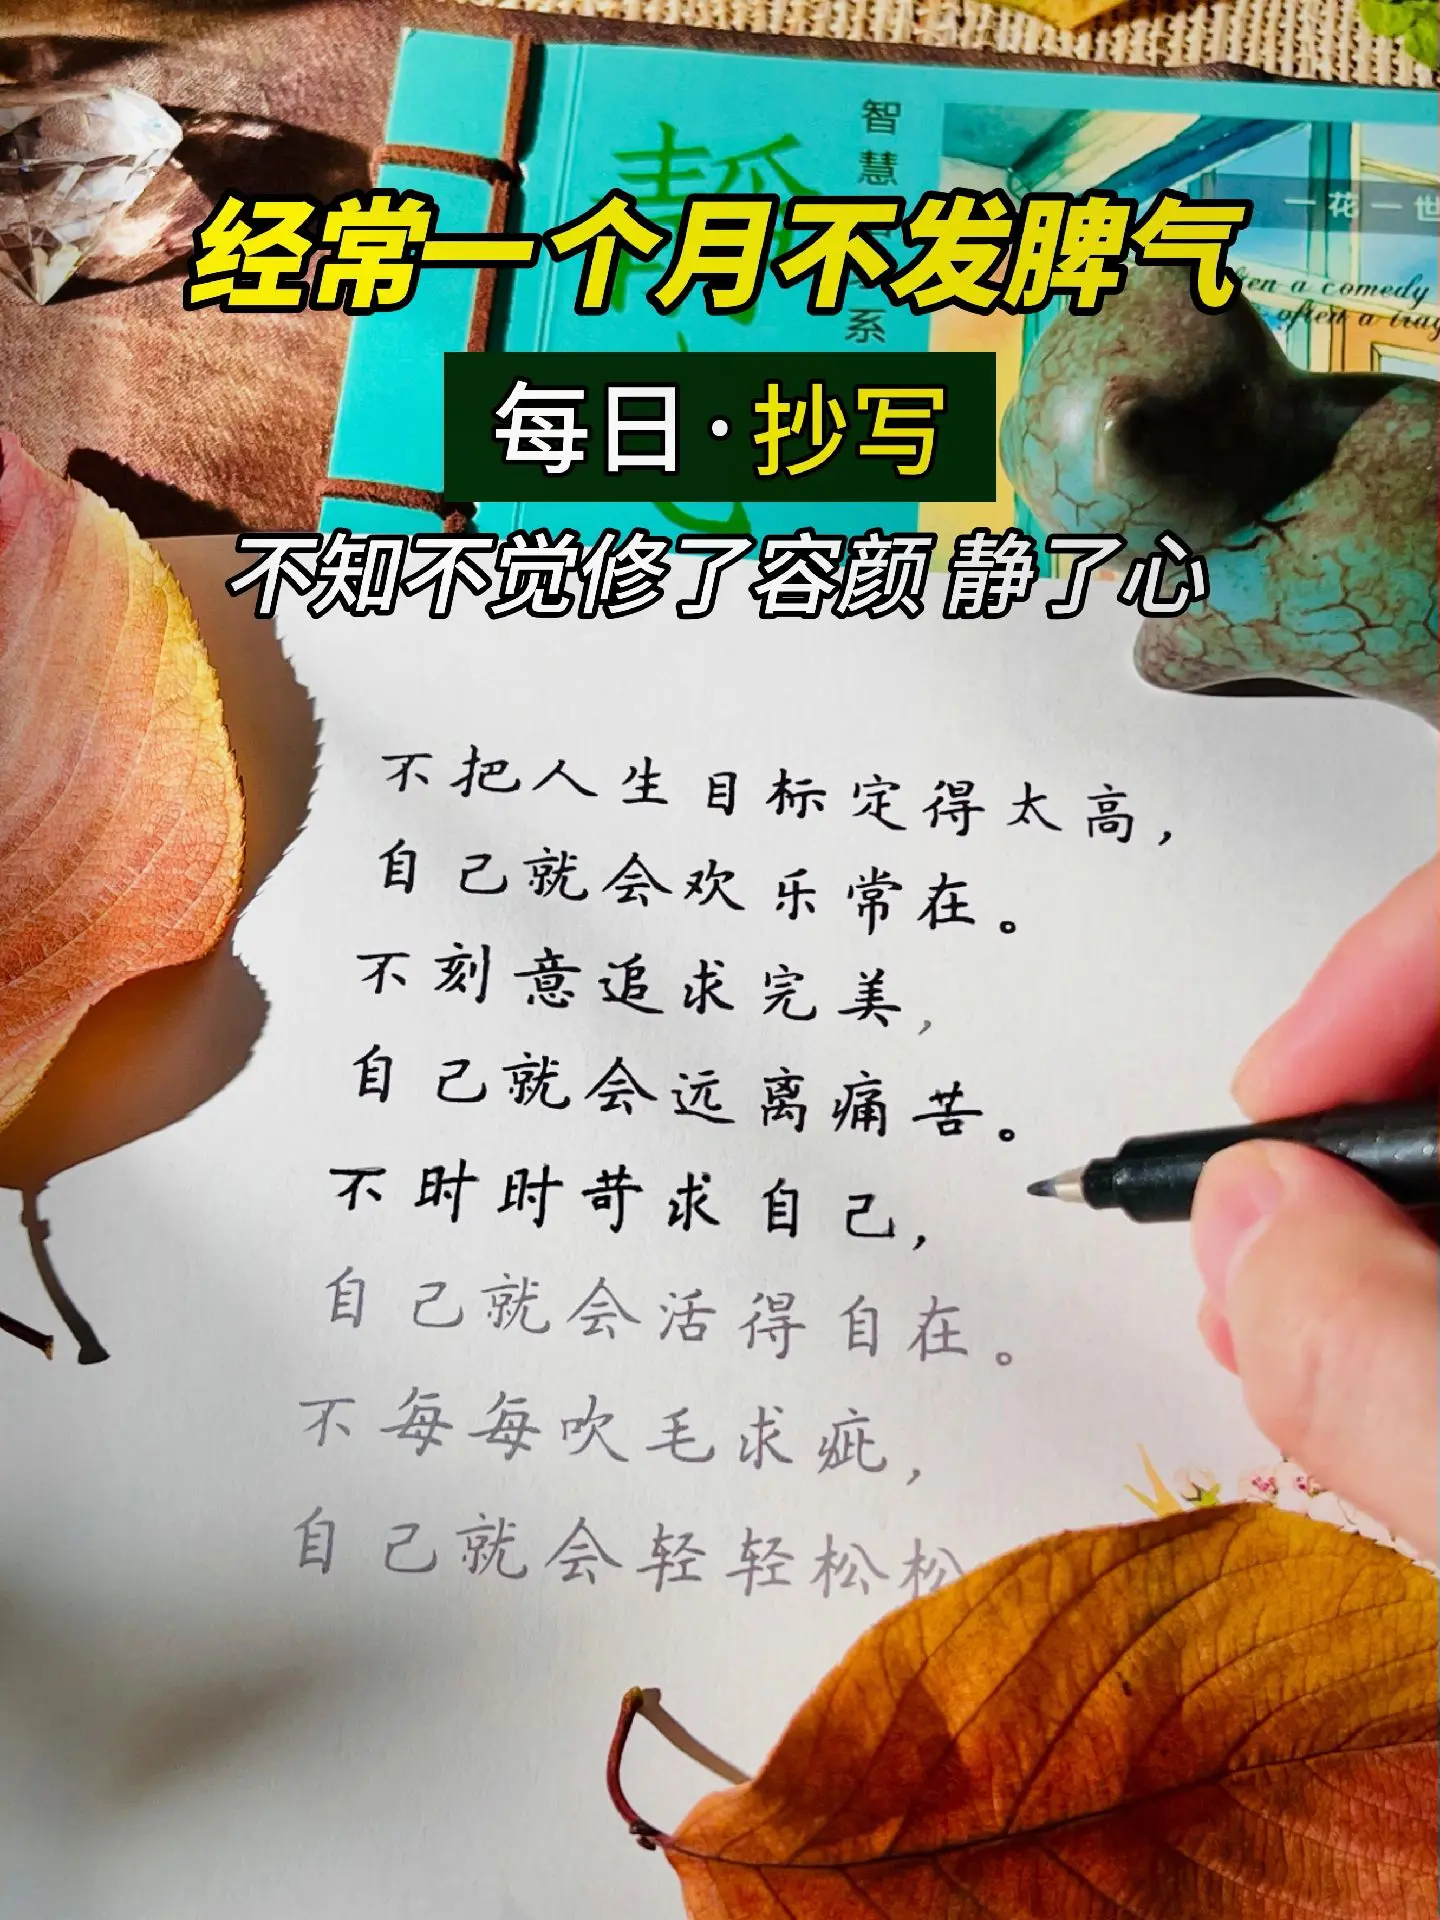 智慧
系
一花一世
en a comedy
often a trag
经常一个月不发脾气
每日·抄写
不知不觉修了容颜 静了心
不把人生目标定得太高，
自己就会欢乐常在。
不刻意追求完美，
自己就会远离痛苦。
不时时苛求自己，
自己就会活得自在。
不每每吹毛求疵，
自己就会轻轻松松